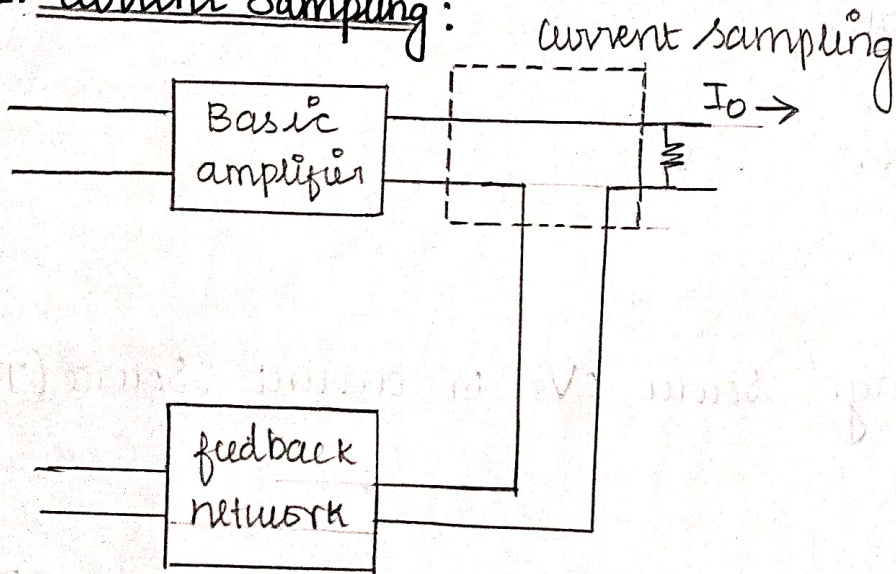 Current Sampling:
current sampling
I₀ →
Basic
amplifier
feedback
network